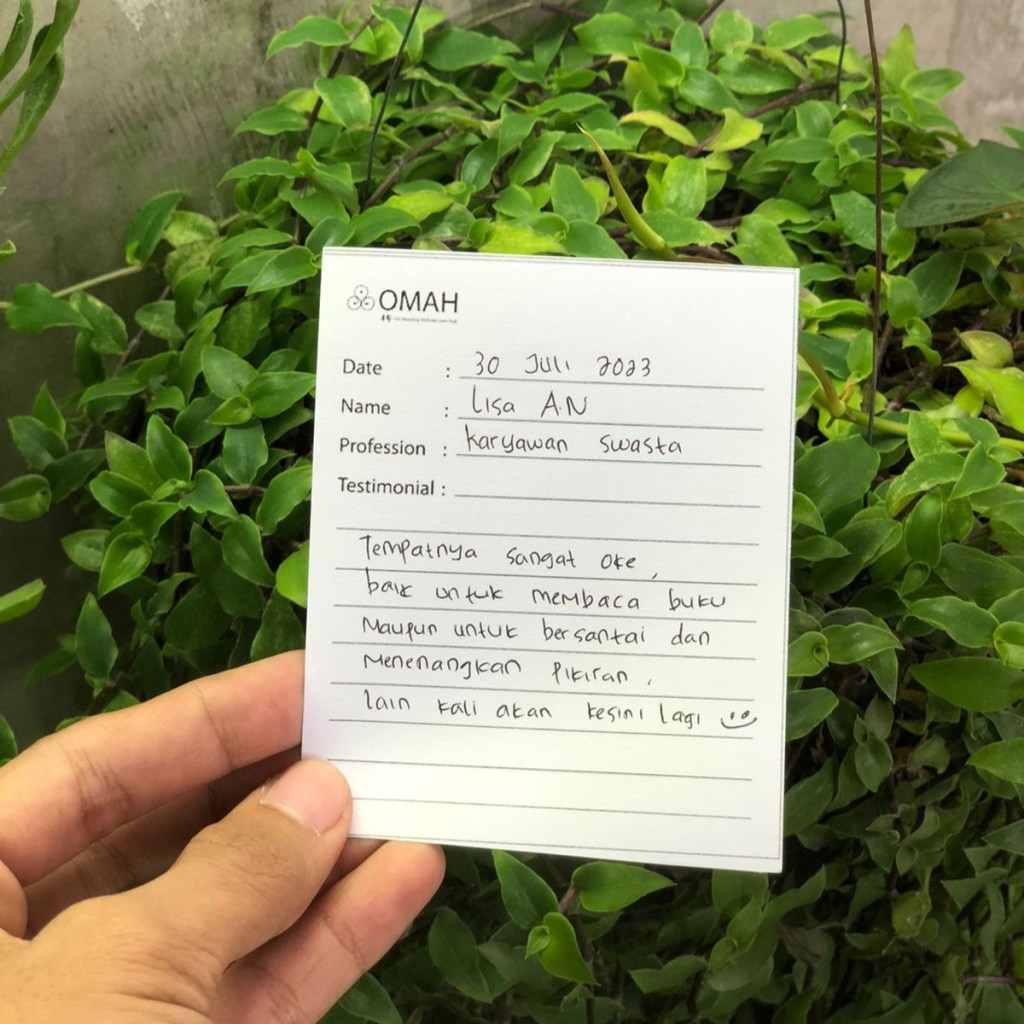 OMAH
Date : 30 Juli 2023
Name : Lisa A.N
Profession : Karyawan Swasta
Testimonial :
Tempatnya sangat oke,
baik untuk membaca buku
Maupun untuk bersantai dan
Menenangkan Pikiran.
lain kali akan kesini lagi